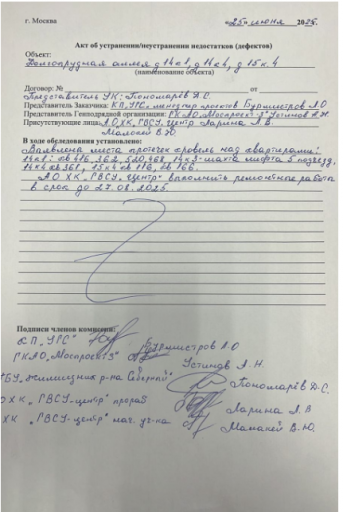 г. Москва «25» июня 2025.
Акт об устранении/неустранении недостатков (дефектов)
Объект:
Долгопрудная аллея д 14к1, д 14к4, д 15к4
(наименование объекта)
Договор: № от
Представитель УК: Пономарёв Д.С.
Представитель Заказчика: КП „УРС" менеджер проектов Бурмистров Л.О
Представитель Генподрядной организации: ГКАО „Моспроект-3" Устинов Л.Н.
Присутствующие лица: А.О ХК „ГВСУ" Центр Ларина Л.В.
В.Ю
В ходе обследования установлено:
Выявлена места протечек кровель над квартирами:
14к1: кв 416, 362, 520, 468 14к3-шахта лифта 5 подъезд,
14к4 кв 361, 15к4 кв 116, кв 166.
АО ХК „ГВСУ Центр" выполнить ремонтные работы
в срок до 27.08.2025
Подписи членов комиссии:
КП „УРС" Бурмистров Л.О
ГКАО „Моспроект3" Устинов Л.Н.
ГБУ „Жилищник р-на Северный" Пономарёв Д.С.
ОХК „ГВСУ-центр" прораб Ларина Л.В
ХК „ГВСУ-центр" нач. уч-ка В.Ю.